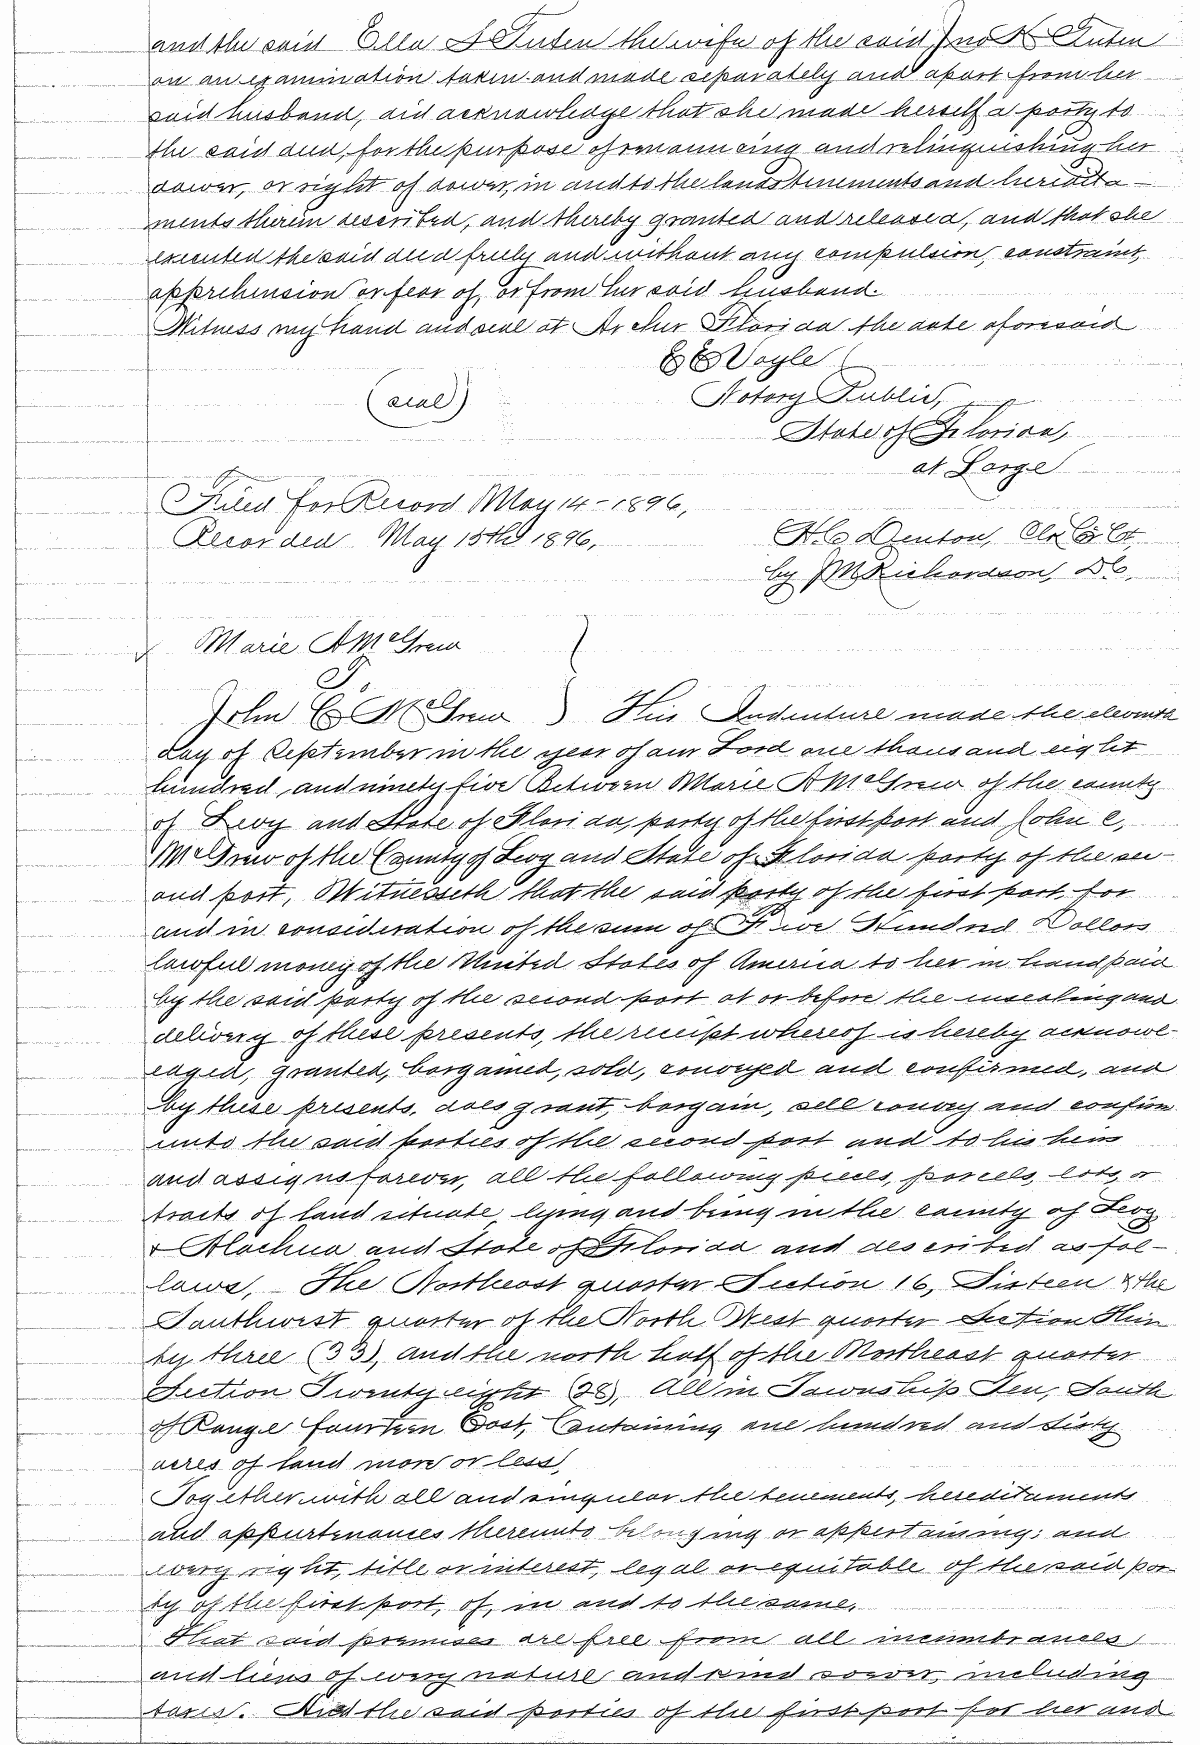 and the said Ella S Tuten the wife of the said Jno K Tuten
on an examination taken and made separately and apart from her
said husband, did acknowledge that she made herself a party to
the said deed, for the purpose of renouncing and relinquishing her
dower, or right of dower, in and to the lands tenements and heredita-
ments therein described, and thereby granted and released, and that she
executed the said deed freely and without any compulsion, constraint,
apprehension or fear of, or from her said husband
Witness my hand and seal at Archer Florida the date aforesaid
E E Voyle
(seal)
Notary Public,
State of Florida,
at Large
Filed for Record May 14-1896,
Recorded May 15th 1896,
H. C Denton, Clk Cir Ct,
by J M Richardson, D C,
Marie A McGrew
To
John C McGrew } This Indenture made the eleventh
day of September in the year of our Lord one thousand eight
hundred, and ninety five Between Marie A McGrew of the county
of Levy and State of Florida, party of the first part and John C,
McGrew of the County of Levy and State of Florida party of the sec-
ond part, Witnesseth that the said party of the first part, for
and in consideration of the sum of Five Hundred Dollars
lawful money of the United States of America to her in hand paid
by the said party of the second part at or before the ensealing and
delivery of these presents, the receipt whereof is hereby acknowl-
edged, granted, bargained, sold, conveyed and confirmed, and
by these presents, does grant, bargain, sell convey and confirm
unto the said parties of the second part and to his heirs
and assigns forever, all the following pieces, parcels, lots, or
tracts of land situate, lying and being in the county of Levy
& Alachua and State of Florida and described as fol-
lows, - The Northeast quarter Section 16, Sixteen & the
Southwest quarter of the North West quarter Section Thir
ty three (33), and the north half of the Northeast quarter
Section Twenty eight (28), All in Township Ten, South
of Range fourteen East, Containing one hundred and sixty
acres of land more or less,
Together with all and singular the tenements, hereditaments
and appurtenances thereunto belonging or appertaining; and
every right, title or interest, legal or equitable of the said par
ty of the first part, of, in and to the same.
That said premises are free from all incumbrances
and liens of every nature and kind soever, including
taxes. And the said parties of the first part for her and